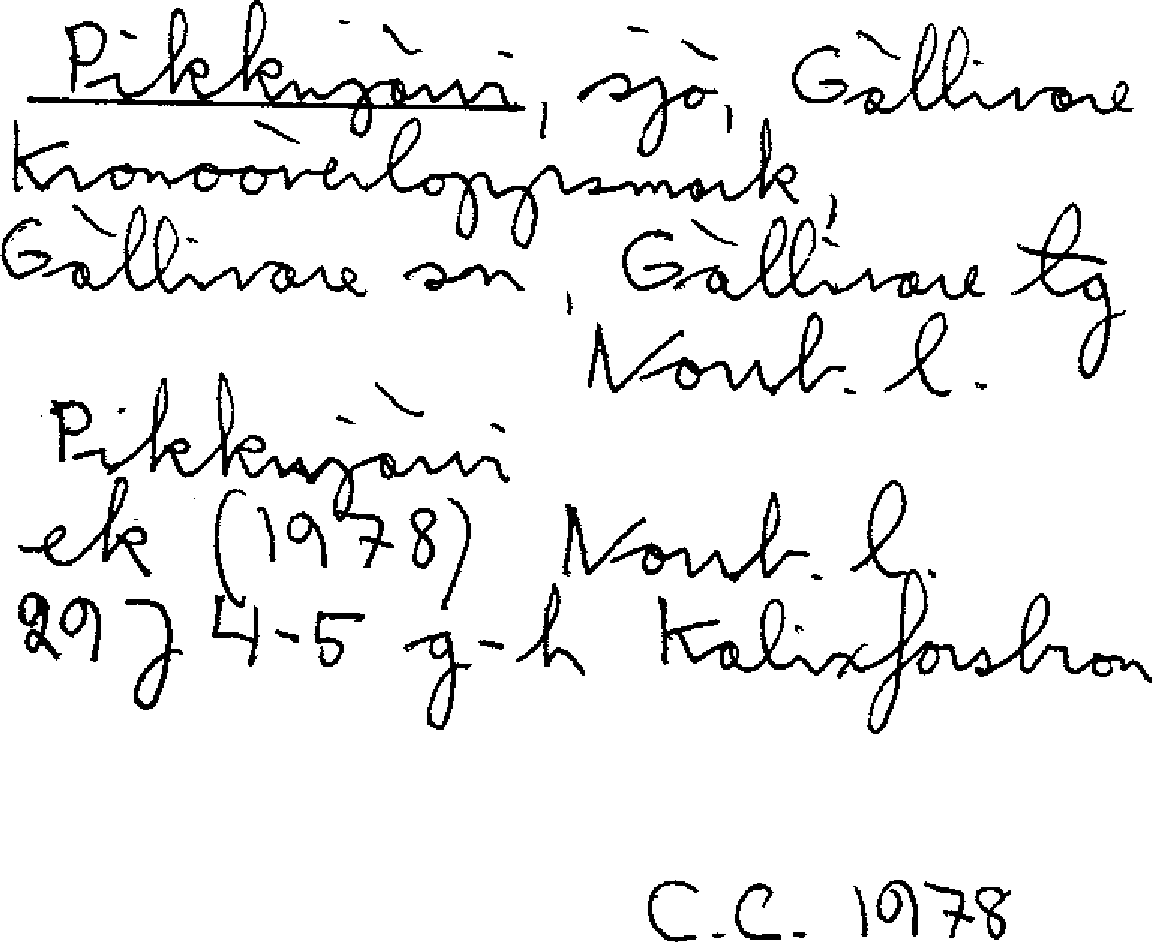 Pikkujärvi, sjö, Gällivare
Kronoöverloppsmark,
Gällivare sn, Gällivare tg
Norrb. l.
Pikkujärvi
ek (1978) Norrb. l.
29 J 4-5 g-h Kalixforsbron
C.C. 1978